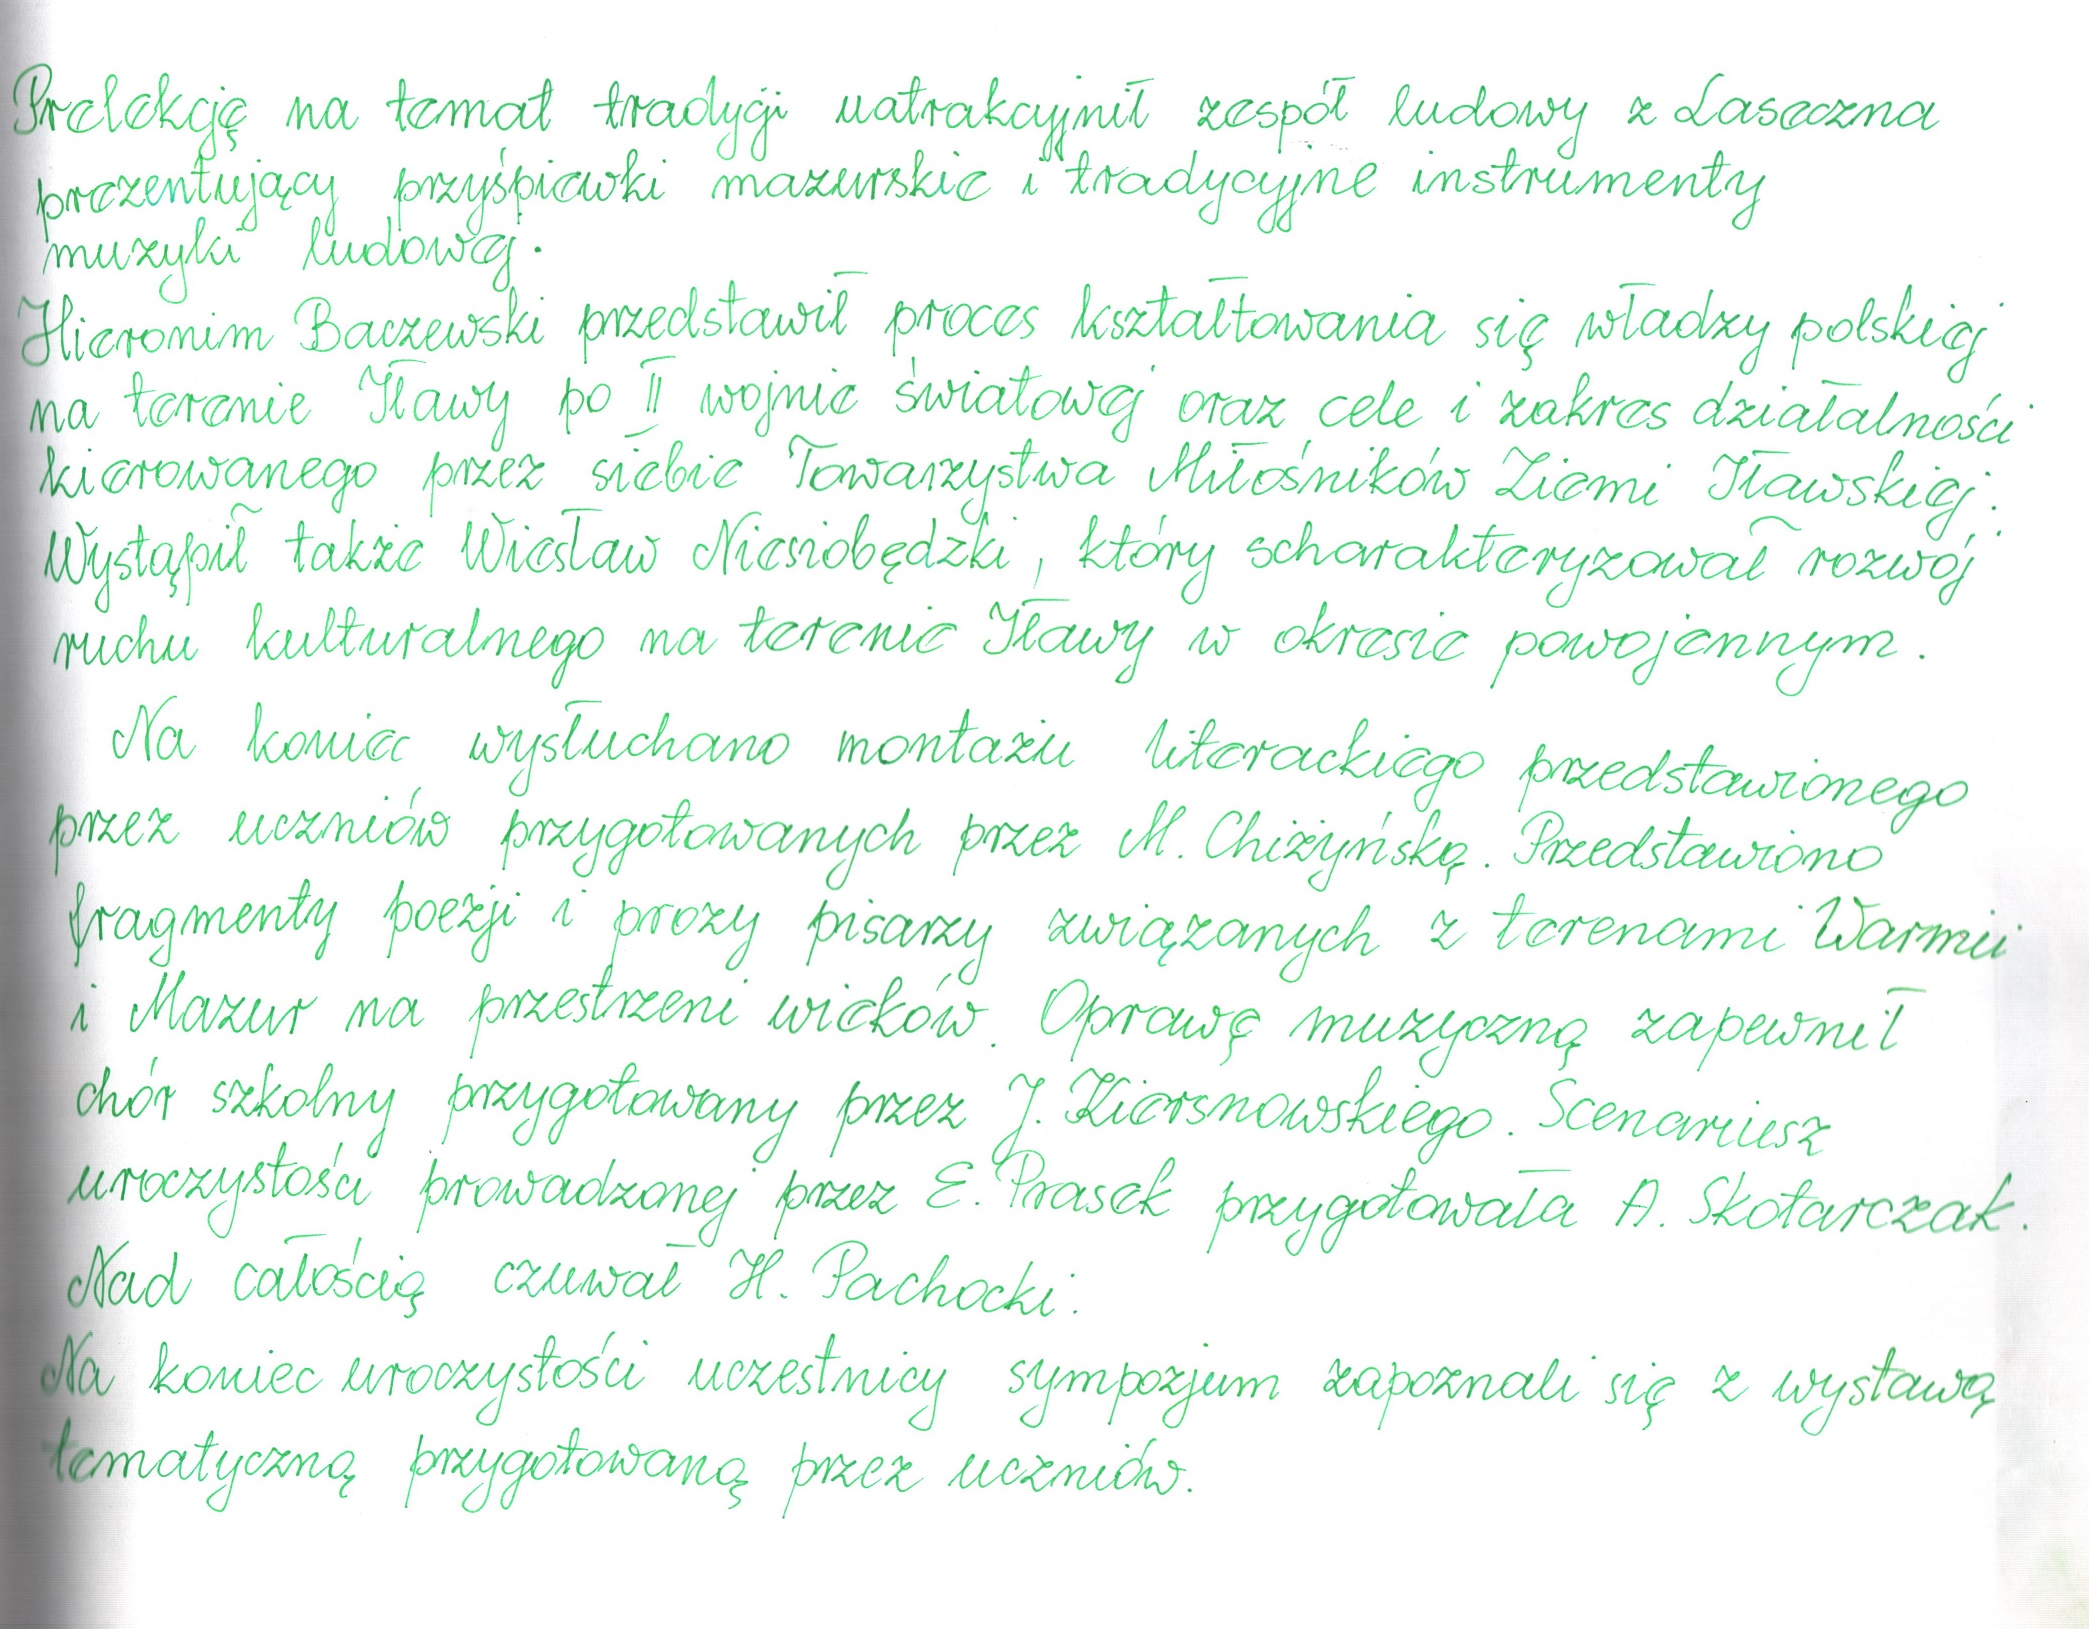 Prelekcję na temat tradycji uatrakcyjnił zespół ludowy z Laseczna
prezentujący przyśpiewki mazurskie i tradycyjne instrumenty
muzyki ludowej.
Hieronim Baczewski przedstawił proces kształtowania się władzy polskiej
na terenie Iławy po II wojnie światowej oraz cele i zakres działalności
kierowanego przez siebie Towarzystwa Miłośników Ziemi Iławskiej.
Wystąpił także Wiesław Niesiobędzki, który scharakteryzował rozwój
ruchu kulturalnego na terenie Iławy w okresie powojennym.
Na koniec wysłuchano montażu literackiego przedstawionego
przez uczniów przygotowanych przez M. Chiżyńską. Przedstawiono
fragmenty poezji i prozy pisarzy związanych z terenami Warmii
i Mazur na przestrzeni wieków. Oprawę muzyczną zapewnił
chór szkolny przygotowany przez J. Kiersnowskiego. Scenariusz
uroczystości prowadzonej przez E. Prasek przygotowała A. Skotarczak.
Nad całością czuwał H. Pachocki.
Na koniec uroczystości uczestnicy sympozjum zapoznali się z wystawą
tematyczną przygotowaną przez uczniów.